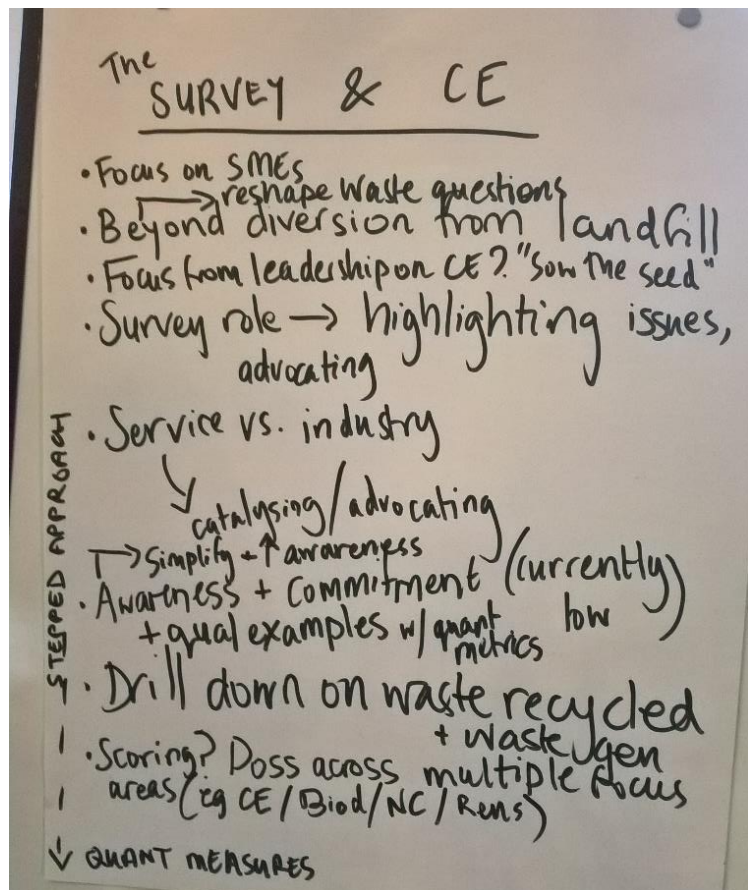 The
SURVEY & CE
• Focus on SMEs
→ reshape waste questions
• Beyond diversion from landfill
• Focus from leadership on CE? "Sow the seed"
• Survey role → highlighting issues,
advocating
• Service vs. industry
catalysing/advocating
→ Simplify + ↑ awareness
• Awareness + Commitment (currently
low)
+ qual examples w/ quant
metrics
• Drill down on waste recycled
+ waste gen
• Scoring? Doss across multiple focus
areas (eg CE/Biod/NC/Rens)
STEPPED APPROACH
QUANT MEASURES